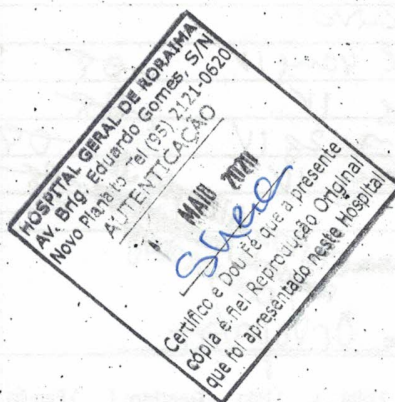 HOSPITAL GERAL DE RORAIMA
Av. Brig. Eduardo Gomes, S/N
Novo Planalto Tel (95) 2121-0620
AUTENTICAÇÃO
MAIO 2020
Certifico e Dou Fé que a presente
cópia é fiel Reprodução Original
que foi apresentado neste Hospital